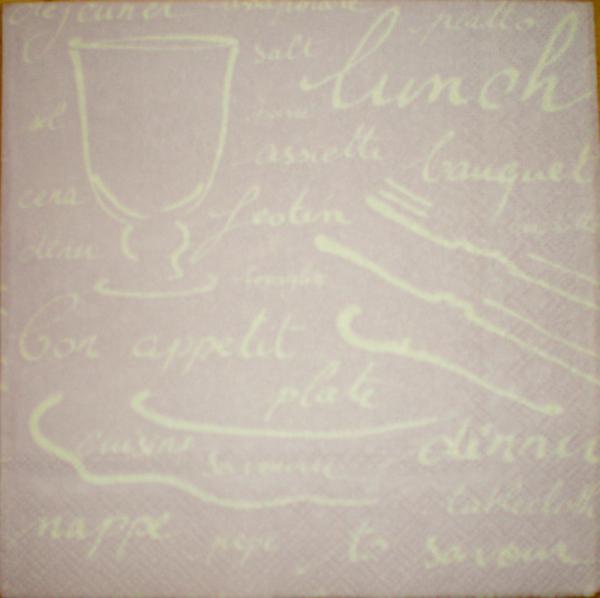 dejeuner assaporare piatto
salt lunch
sel
assiette banquet
cena festin
menu
bon appetit
plate
cuisine savourer dinner
tablecloth
nappe pepe to savour